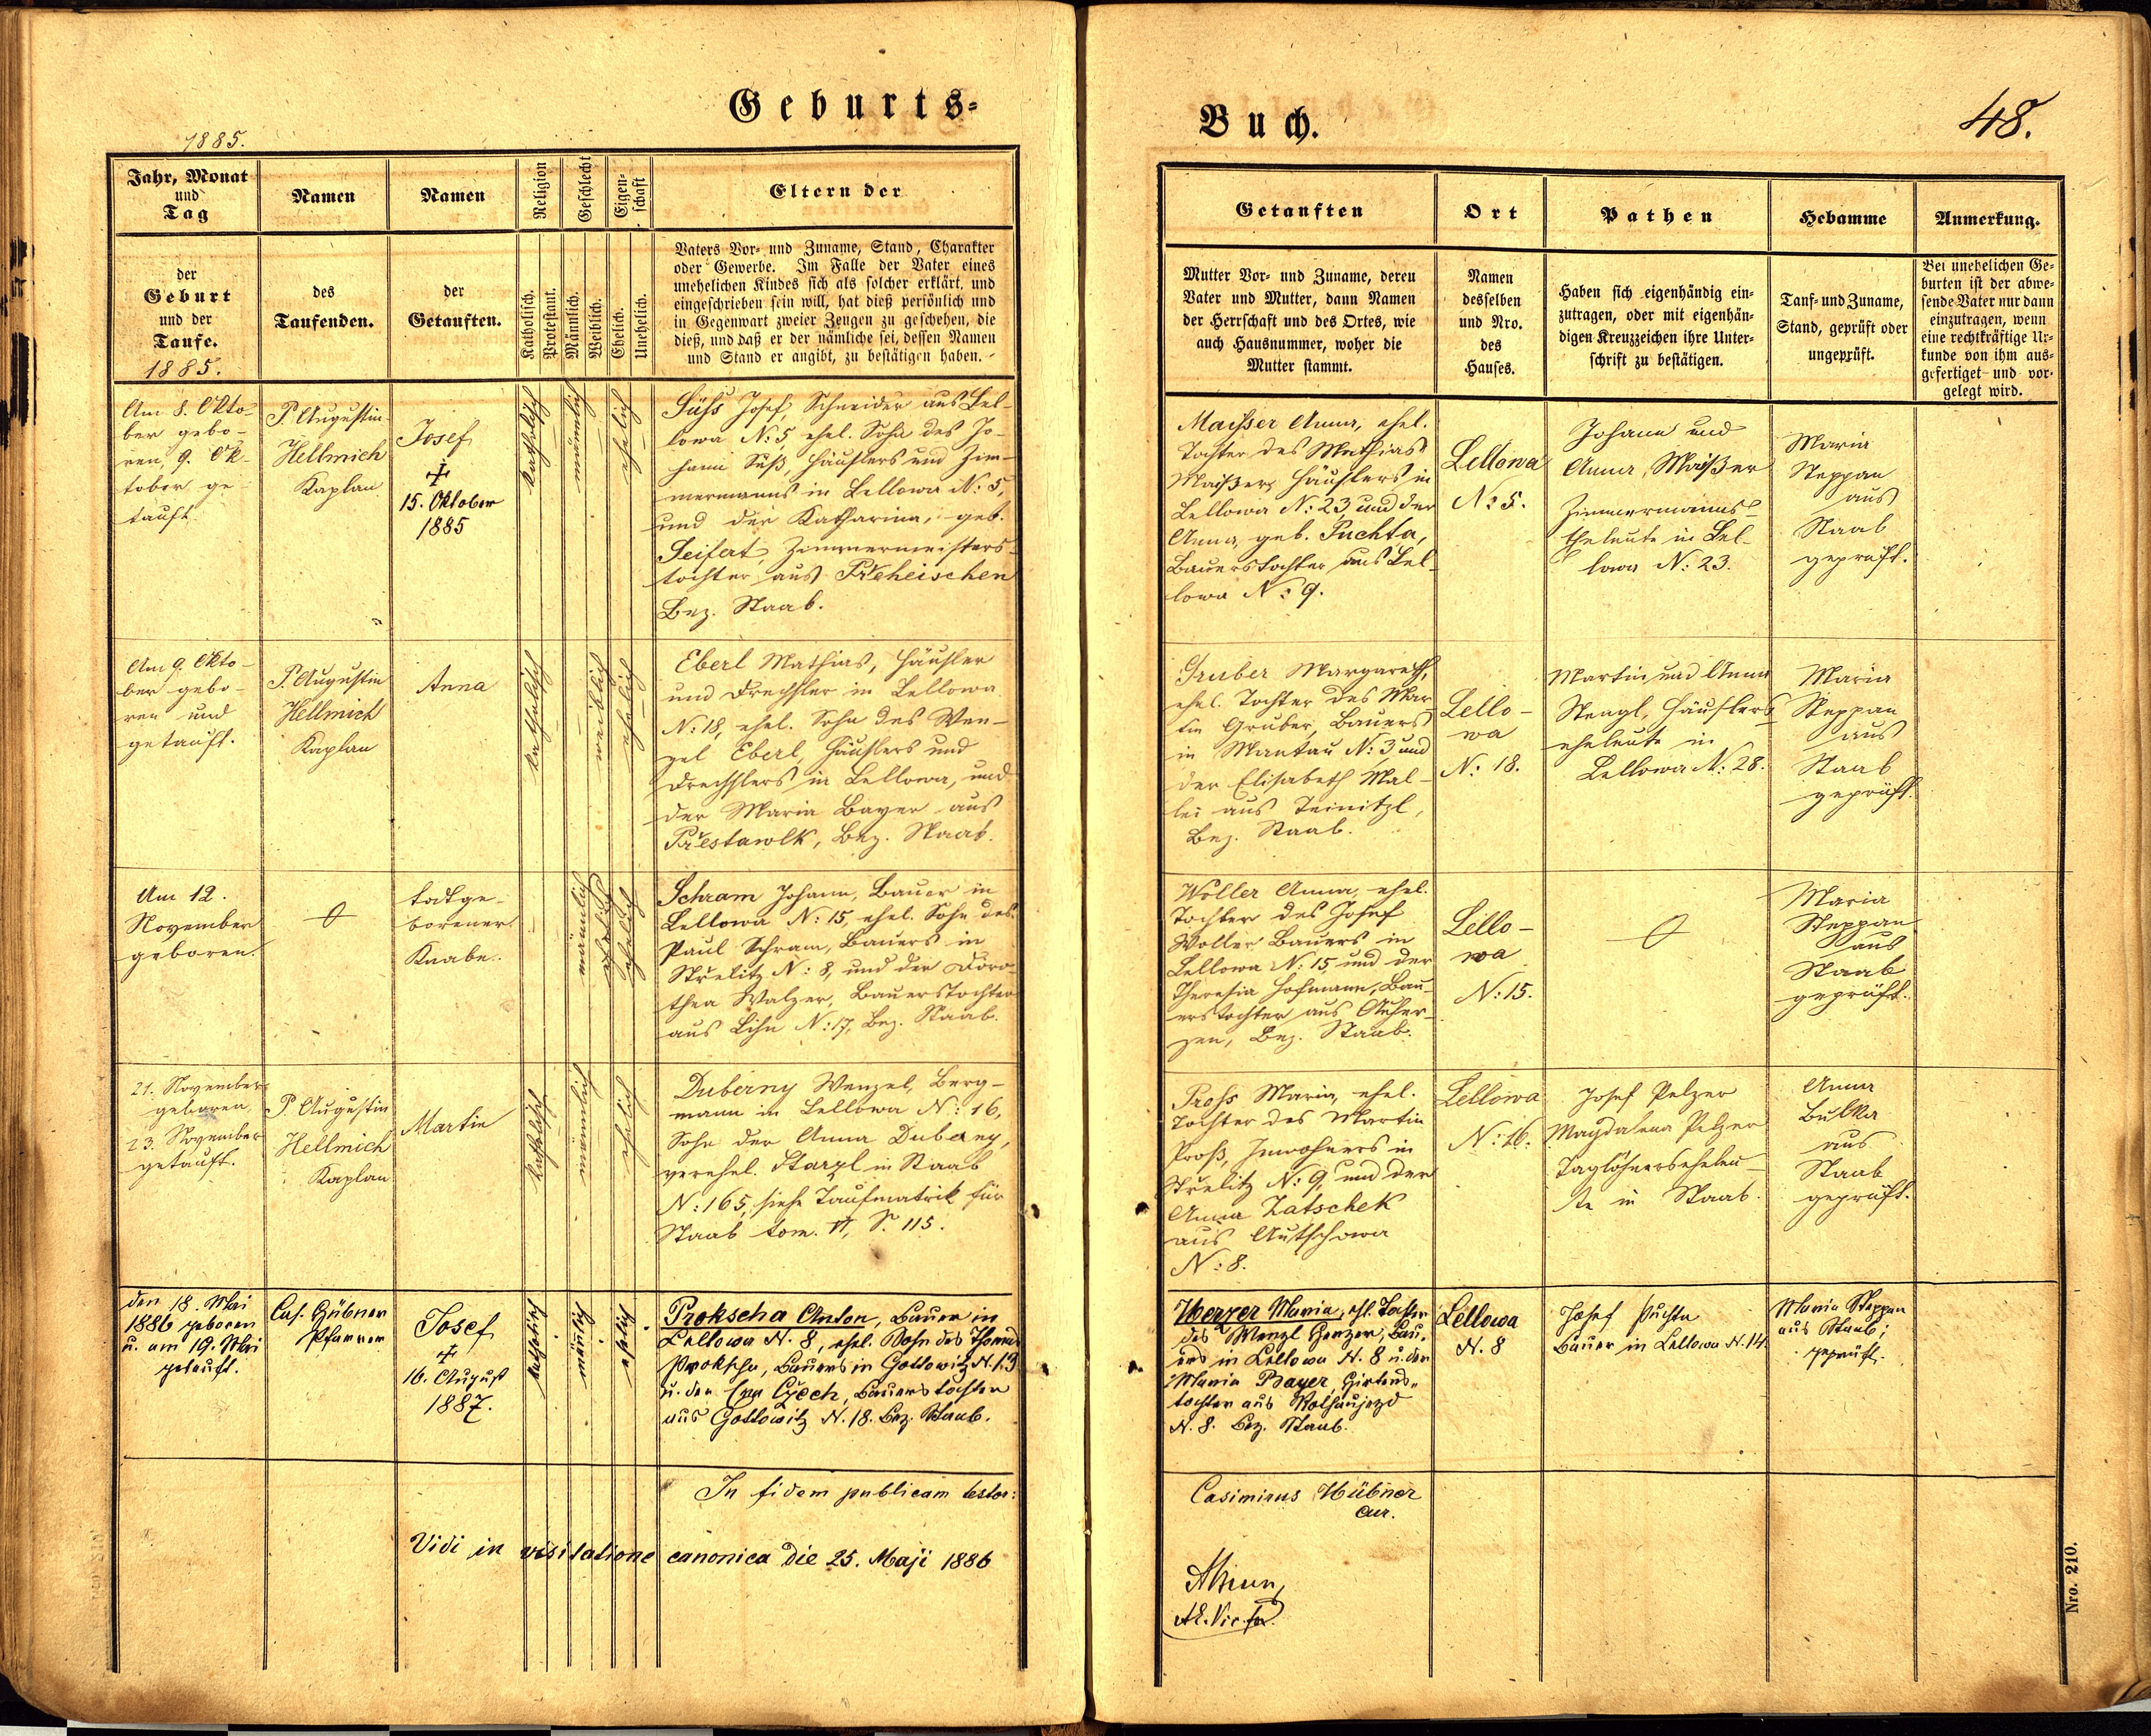 Geburts-
Buch.
48.
1885.
Jahr, Monat
und
Tag
Namen
Namen
Religion
Geschlecht
Eigen-
schaft
Eltern der
der
Geburt
und der
Taufe.
1885.
des
Taufenden.
der
Getauften.
Katholisch.
Protestant.
Männlich.
Weiblich.
Ehelich.
Unehelich.
Vaters Vor- und Zuname, Stand, Charakter
oder Gewerbe. Im Falle der Vater eines
unehelichen Kindes sich als solcher erklärt, und
eingeschrieben sein will, hat dieß persönlich und
in Gegenwart zweier Zeugen zu geschehen, die
dieß, und daß er der nämliche sei, dessen Namen
und Stand er angibt, zu bestätigen haben.
Getauften
Ort
Pathen
Hebamme
Anmerkung.
Mutter Vor- und Zuname, deren
Vater und Mutter, dann Namen
der Herrschaft und des Ortes, wie
auch Hausnummer, woher die
Mutter stammt.
Namen
desselben
und Nro.
des
Hauses.
Haben sich eigenhändig ein-
zutragen, oder mit eigenhän-
digen Kreuzzeichen ihre Unter-
schrift zu bestätigen.
Tauf- und Zuname,
Stand, geprüft oder
ungeprüft.
Bei unehelichen Ge-
burten ist der abwe-
sende Vater nur dann
einzutragen, wenn
eine rechtkräftige Ur-
kunde von ihm aus-
gefertiget und vor-
gelegt wird.
Am 8. Okto-
ber gebo-
ren, 9. Ok-
tober ge-
tauft
P. Augustin
Hellmich
Kaplan
Josef
✝
15. Oktober
1885
katholisch
männlich
ehelich
Süss Josef, Schneider aus Lel-
lowa N: 5 ehel. Sohn des Jo-
hann Süß, Häuslers und Zim-
mermanns in Lellowa N: 5,
und der Katharina, geb.
Seifert, Zimmermeisters-
tochter aus Preheischen
Bez. Staab.
Maisser Anna, ehel.
Tochter des Mathias
Maißer, Häuslers in
Lellowa N: 23 und der
Anna, geb. Puchta,
Bauerstochter aus Lel-
lowa N: 9.
Lellowa
N: 5.
Johann und
Anna Maißer
Zimmermanns-
eheleute in Lel-
lowa N: 23.
Maria
Steppan
aus
Staab
geprüft.
Am 9. Okto-
ber gebo-
ren und
getauft.
P. Augustin
Hellmich
Kaplan
Anna
katholisch
weiblich
ehelich
Eberl Mathias, Häusler
und Drechsler in Lellowa
N: 18, ehel. Sohn des Wen-
zel Eberl, Häuslers und
Drechslers in Lellowa, und
der Maria Bayer aus
Přestawlk, Bez. Staab.
Gruber Margareth,
ehel. Tochter des Mar-
tin Gruber, Bauers
in Mantau N: 3 und
der Elisabeth Mal-
lei aus Teinitzl,
Bez. Staab.
Lello-
wa
N: 18.
Martin und Anna
Stengl, Häuslers-
eheleute in
Lellowa N: 28.
Maria
Steppan
aus
Staab
geprüft.
Am 12.
November
geboren.
todtge-
borener
Knabe.
männlich
ehelich
Schram Johann, Bauer in
Lellowa N: 15, ehel. Sohn des
Paul Schram, Bauers in
Střelitz N: 8, und der Doro-
thea Walzer, Bauerstochter
aus Lihn N: 17, Bez. Staab.
Woller Anna, ehel.
Tochter des Josef
Woller Bauers in
Lellowa N: 15 und der
Theresia Hofmann, Bau-
erstochter aus Auher-
zen, Bez. Staab.
Lello-
wa
N: 15.
Maria
Steppan
aus
Staab
geprüft.
21. November
geboren,
23. November
getauft.
P. Augustin
Hellmich
Kaplan
Martin
katholisch
männlich
ehelich
Duberny Wenzel, Berg-
mann in Lellowa N: 16,
Sohn der Anna Duberny,
verehel. Starzl in Staab
N: 165, siehe Taufmatrik für
Staab tom. VI, S. 115.
Pross Maria, ehel.
Tochter des Martin
Proß, Inwohners in
Střelitz N: 9, und der
Anna Zatschek
aus Autschowa
N: 8.
Lellowa
N: 16.
Josef Pelzer
Magdalena Pelzer
Taglöhnerseheleu-
te in Staab.
Anna
Bulka
aus
Staab
geprüft.
den 18. Mai
1886 geboren
u. am 19. Mai
getauft.
Cas. Hübner
Pfarrer
Josef
✝
16. August
1887.
katholisch
männlich
ehelich
Prokscha Anton, Bauer in
Lellowa N. 8, ehel. Sohn des Thomas
Prokscha, Bauers in Gottowitz N. 13
u. der Eva Czech, Bauerstochter
aus Gottowitz N. 18. Bez. Staab.
Herzer Maria, ehl. Tochter
des Wenzl Herzer, Bau-
ers in Lellowa N. 8 u. der
Maria Bayer, Hirtens-
tochter aus
N. 8. Bez. Staab.
Lellowa
N. 8
Josef Puchta
Bauer in Lellowa N. 14.
Maria Steppan
aus Staab;
geprüft.
In fidem publicam testor:
Casimirus Hübner
Cur.
Vidi in visitatione canonica die 25. Maji 1886
Nro. 210.